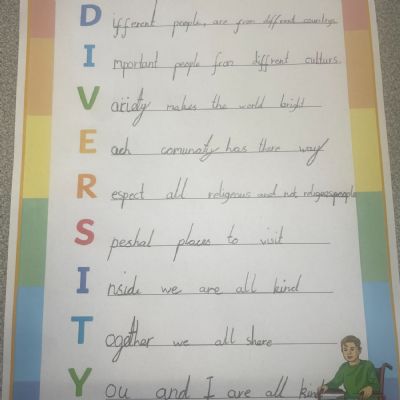 Different people, are from different countrys
Important people from diffrent culturs.
Variaty makes the world bright
Each comunaty has there way
Respect all religeous and not religeospeople
Speshal places to visit
Inside we are all kind
Together we all share
You and I are all kind